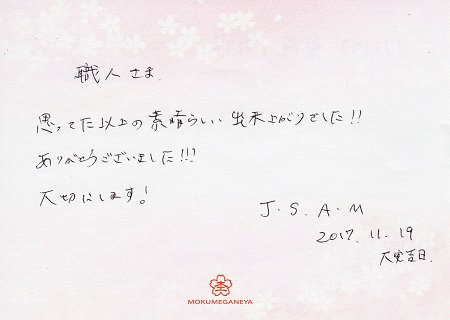 職人さま
思ってた以上の素晴らしい出来上がりでした!!
ありがとうございました!!!
大切にします!
J・S・A・M
2017.11.19
大安吉日.
MOKUMEGANEYA